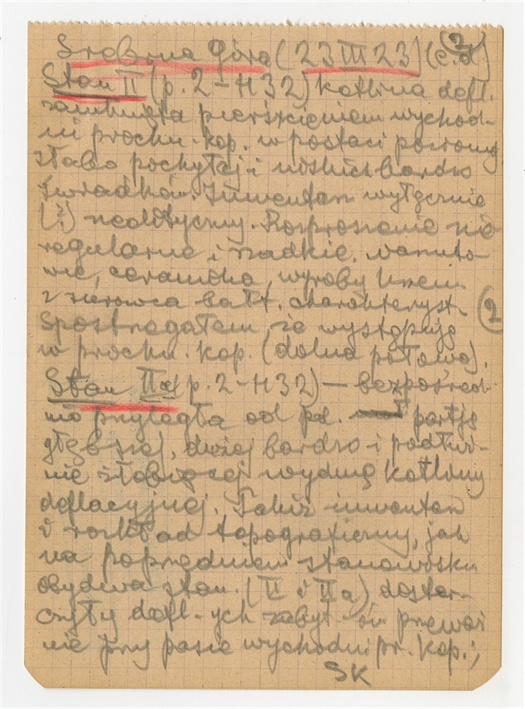 Srebrna Góra (23 III 23) (c.d)
2
Stan II (p. 2-H32) kotlina defl.
zamknięta pierścieniem wychod-
ni próchn. kop. w postaci poziomy
słabo pochyłej i niskich bardzo
świadków. Inwentarz wyłącznie
(?) neolityczny. Rozproszenie nie
regularne i rzadkie. 
wie, ceramika, wyroby krzem.
z surowca bałt. charakteryst.
Spostrzegałem że występują
2
w próchn. kop. (dolna połowa).
Stan IIa (p. 2-H32) — bezpośred-
nio przyległa od pd. partja
głębszej, dużej bardzo i
nie żłobiącej wydmę kotliny
deflacyjnej. Takiż inwentarz
i rozkład topograficzny, jak
na poprzedniem stanowisku
obydwa stan. (II i IIa) dostar-
czyły defl-ych zabyt-ów przeważ
nie przy pasie wychodni pr. kop.;
SK